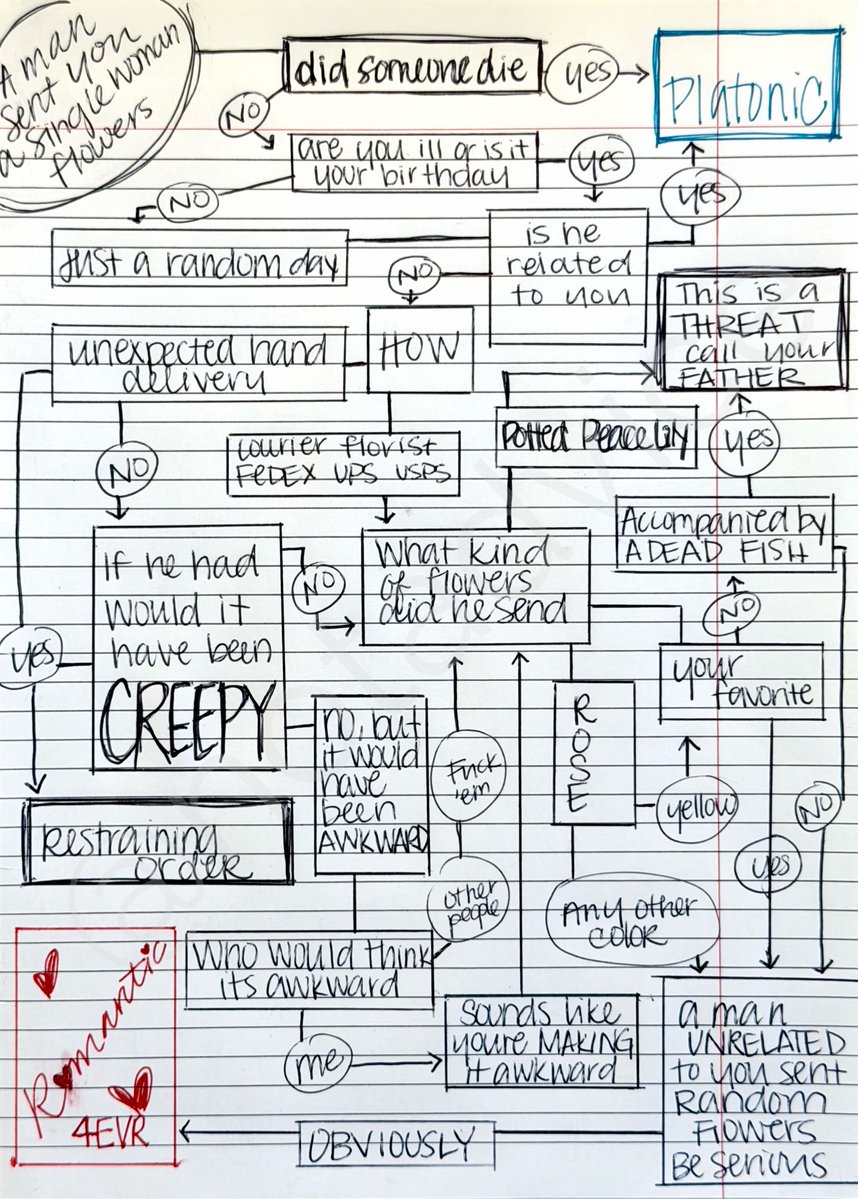 A man
sent you
a single woman
flowers
did someone die
yes
Platonic
NO
are you ill or is it
your birthday
yes
yes
NO
Just a random day
is he
related
to you
NO
This is a
THREAT
call your
FATHER
unexpected hand
delivery
HOW
Potted Peace Lily
yes
NO
courier florist
FEDEX UPS USPS
Accompanied by
A DEAD FISH
If he had
would it
have been
CREEPY
NO
What kind
of flowers
did he send
NO
yes
your
favorite
no, but
it would
have
been
AWKWARD
ROSE
Fuck
'em
yellow
NO
Restraining
order
yes
other
people
Any other
color
Who would think
its awkward
Romantic
4EVR
me
sounds like
youre MAKING
it awkward
a man
UNRELATED
to you sent
Random
Flowers
Be serious
OBVIOUSLY